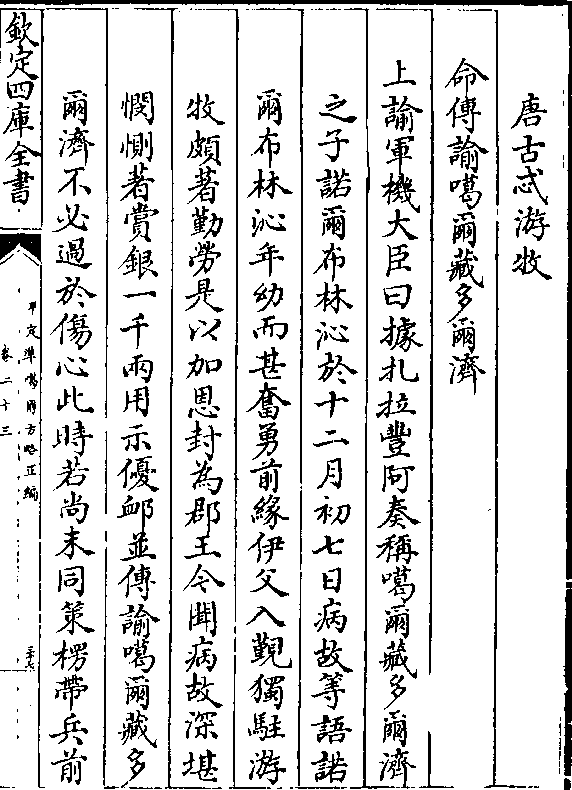 唐古忒游牧
命傳諭噶爾藏多爾濟
上諭軍機大臣曰據扎拉豐阿奏稱噶爾藏多爾濟
之子諾爾布林沁於十二月初七日病故等語諾
爾布林沁年幼而甚奮勇前緣伊父入覲獨駐游
牧頗著勤勞是以加恩封為郡王今聞病故深堪
憫惻著賞銀一千兩用示優衈並傳諭噶爾藏多
爾濟不必過於傷心此時若尚未同策楞帶兵前
欽定四庫全書
平定準噶爾方略正編
卷二十三